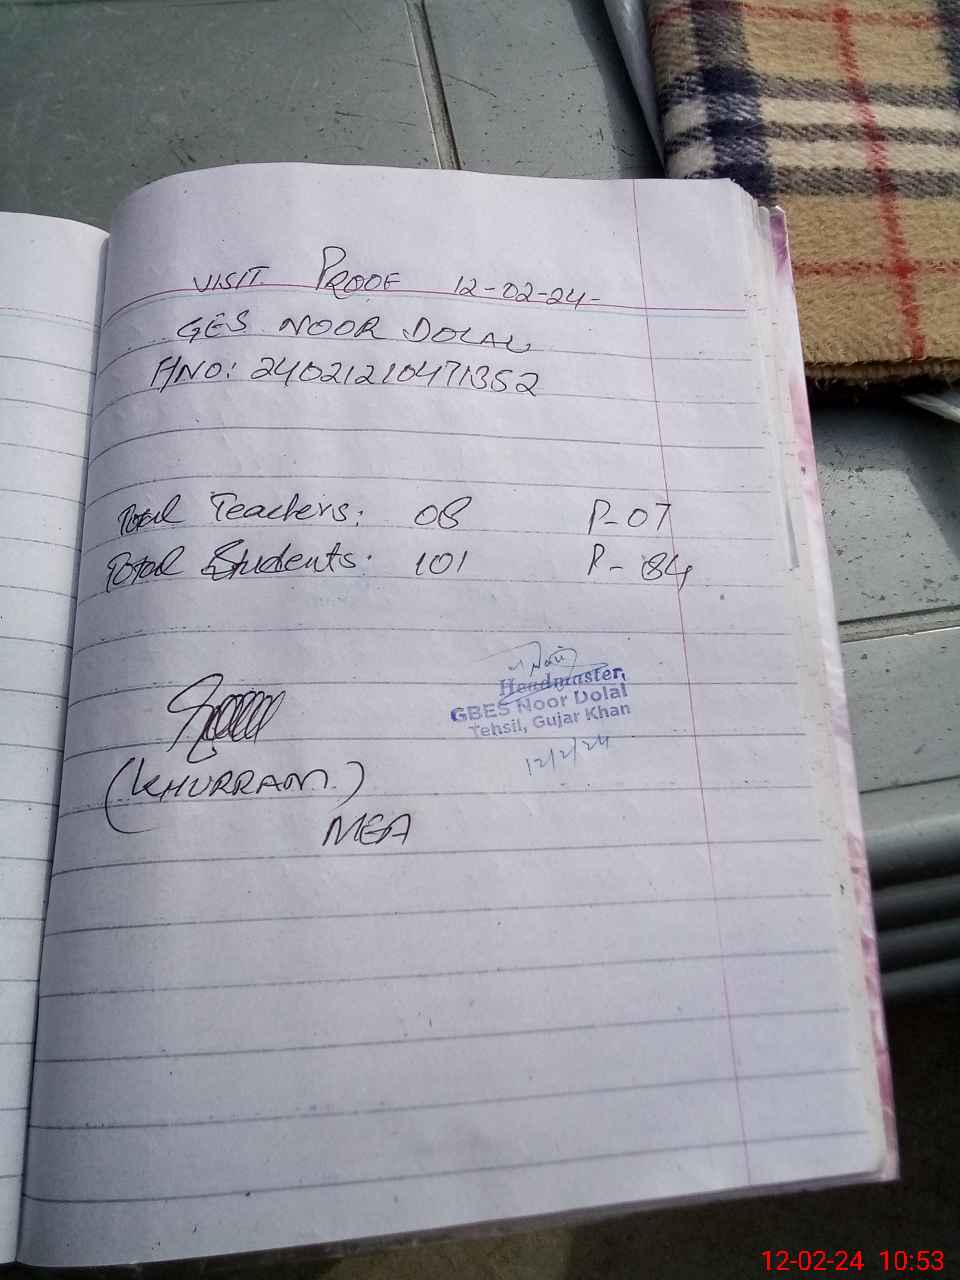 VISIT PROOF 12-02-24-
GES NOOR DOLAL
HNO: 24021210471352
Total Teachers: 08 P-07
Total Students: 101 P-84
Headmaster,
GBES Noor Dolal
Tehsil, Gujar Khan
12/2/24
(KHURRAM.)
MEA
12-02-24 10:53